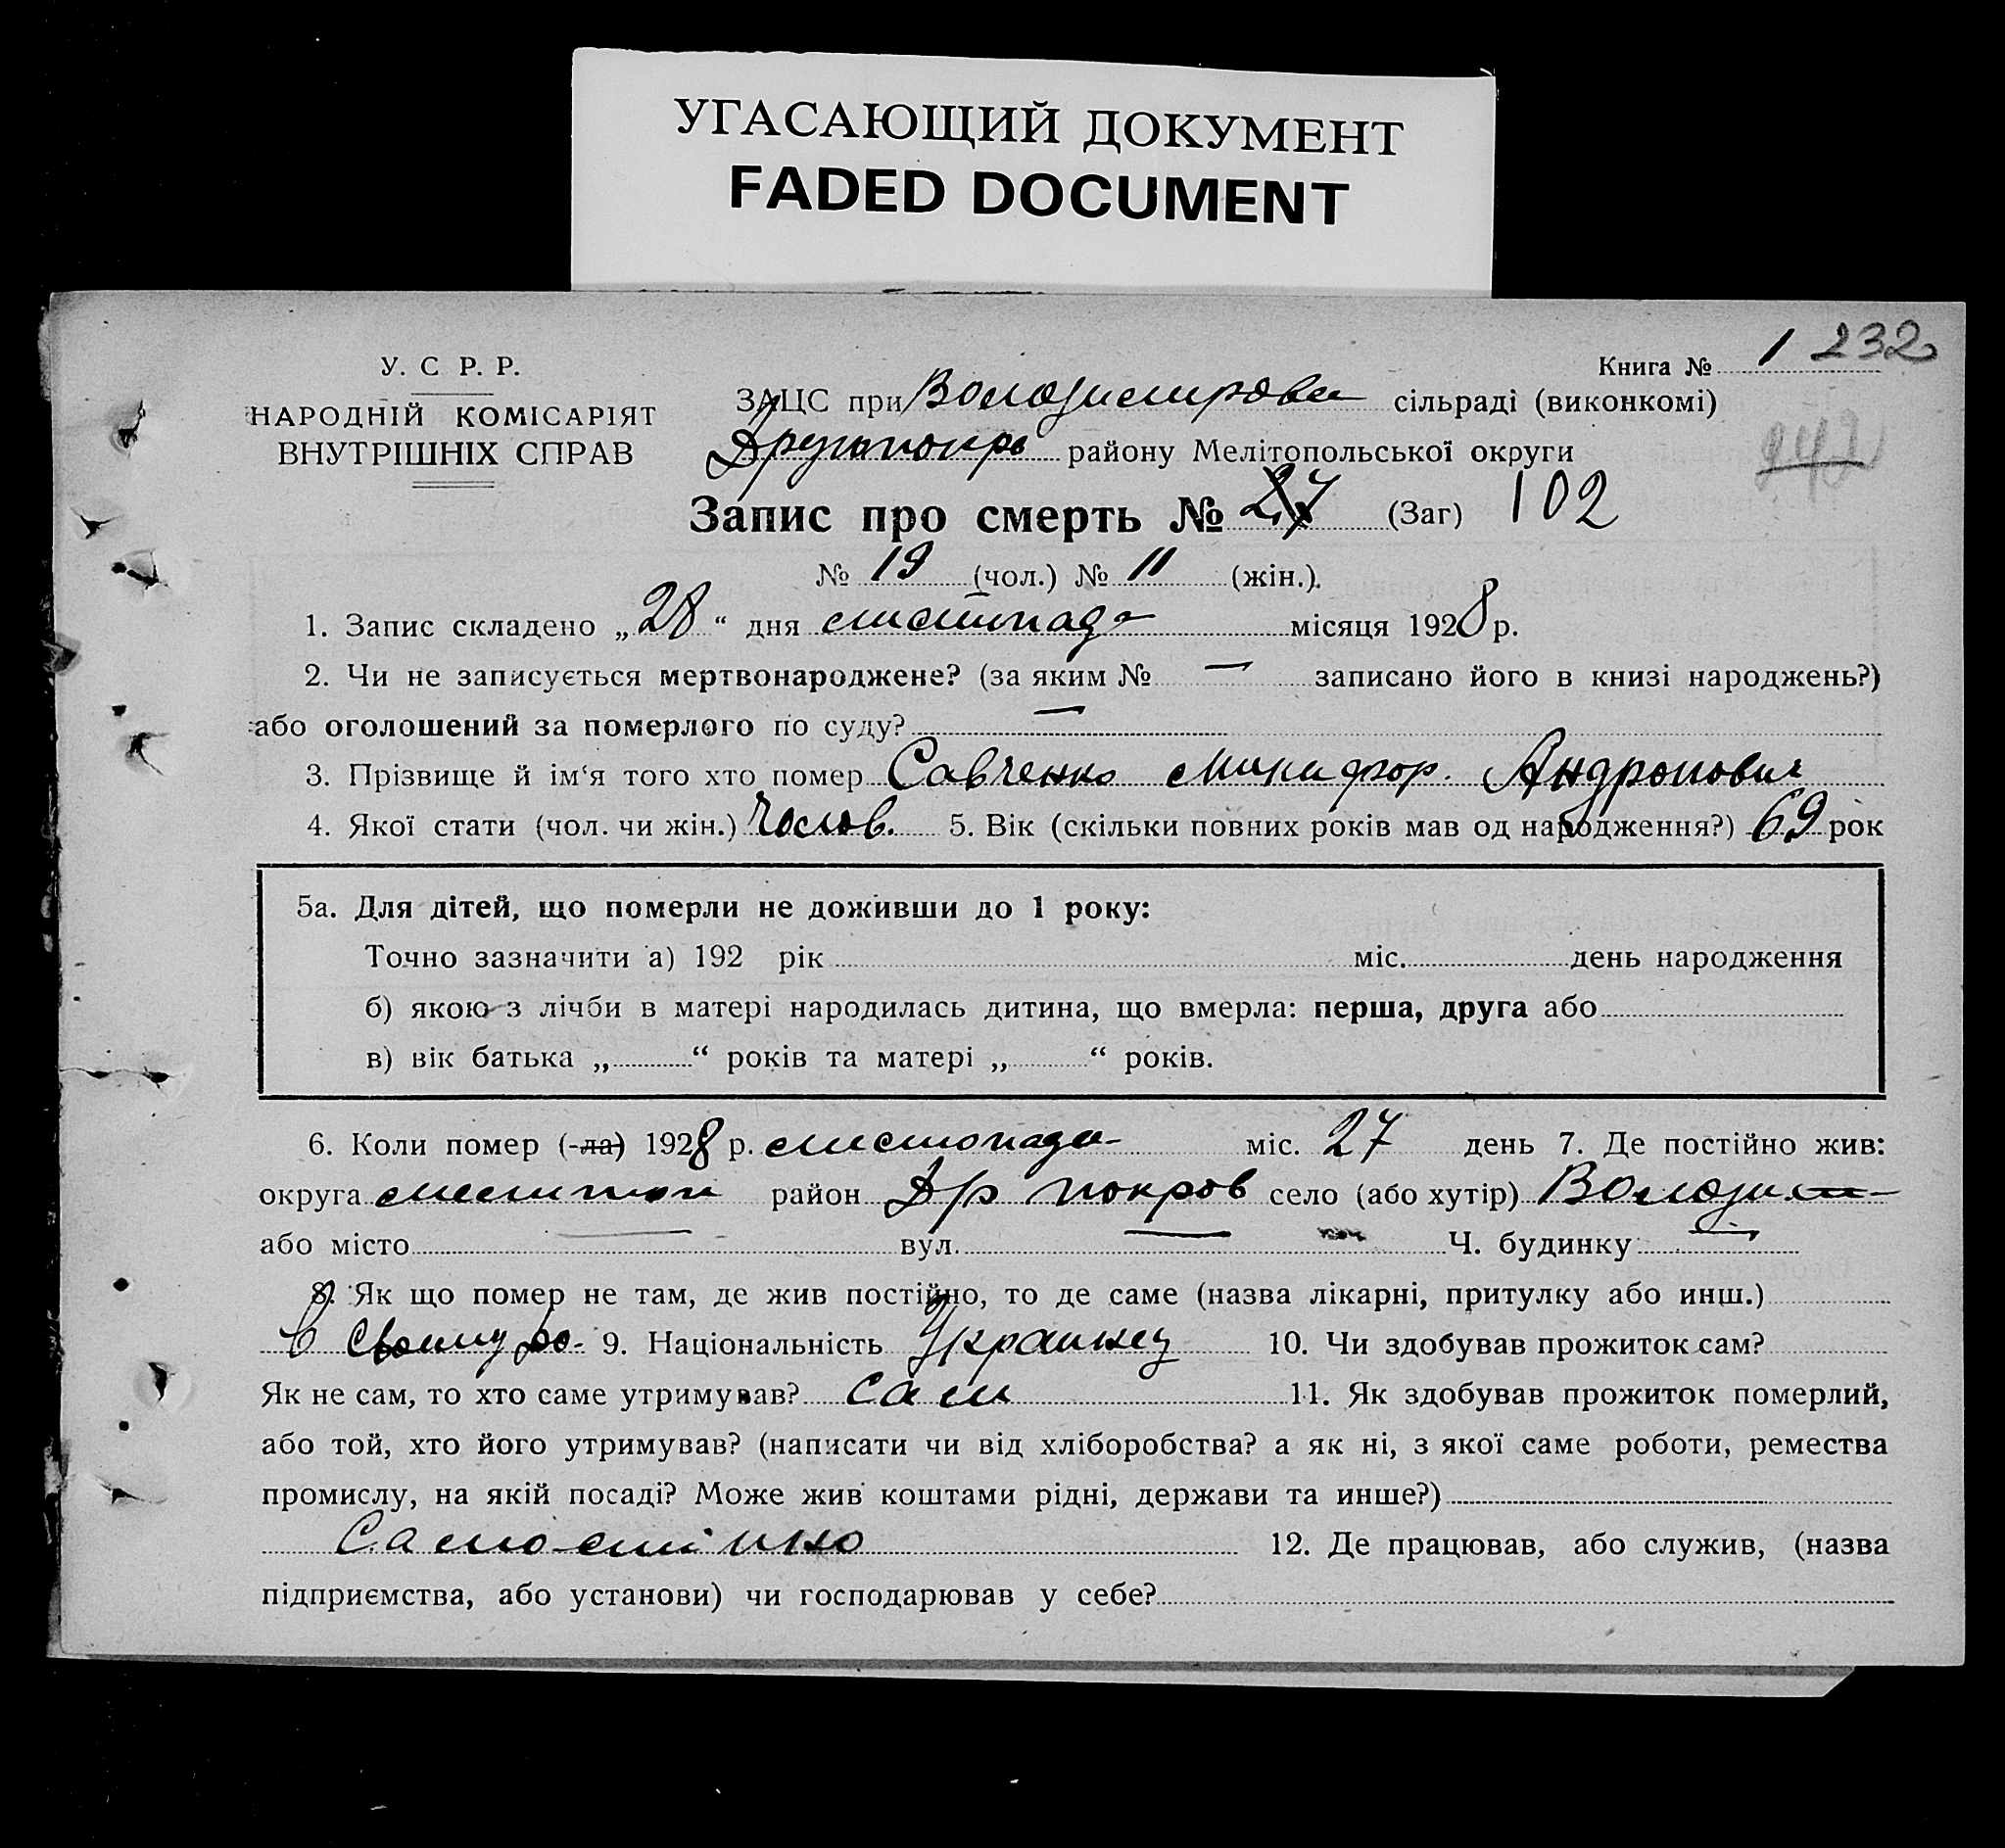 УГАСАЮЩИЙ ДОКУМЕНТ
FADED DOCUMENT
У. С Р. Р.
НАРОДНІЙ КОМІСАРІЯТ
ВНУТРІШНІХ СПРАВ
Книга № 1 232
ЗАЦС при сільраді (виконкомі)
району Мелітопольської округи
Запис про смерть № 27 (Заг) 102
№ 19 (чол.) № 11 (жін.).
1. Запис складено „28“ дня листопада місяця 1928 р.
2. Чи не записується мертвонароджене? (за яким № — записано його в книзі народжень?)
або оголошений за померлого по суду? —
3. Прізвище й ім‘я того хто помер Савченко Микифор. Андронович
4. Якої стати (чол. чи жін.) Чолов. 5. Вік (скільки повних років мав од народження?) 69 рок
5а. Для дітей, що померли не доживши до 1 року:
Точно зазначити а) 192 рік міс. день народження
б) якою з лічби в матері народилась дитина, що вмерла: перша, друга або
в) вік батька „ “ років та матері „ “ років.
6. Коли помер (-ла) 1928 р. листопада міс. 27 день 7. Де постійно жив:
округа Мелитоп район Др покров село (або хутір) Володим
або місто — вул. — Ч. будинку —
8. Як що помер не там, де жив постійно, то де саме (назва лікарні, притулку або инш.)
в своему до- 9. Національність Украинец 10. Чи здобував прожиток сам?
Як не сам, то хто саме утримував? сам 11. Як здобував прожиток померлий,
або той, хто його утримував? (написати чи від хліборобства? а як ні, з якої саме роботи, ремества
промислу, на якій посаді? Може жив коштами рідні, держави та инше?)
Самостійно 12. Де працював, або служив, (назва
підприємства, або установи) чи господарював у себе?